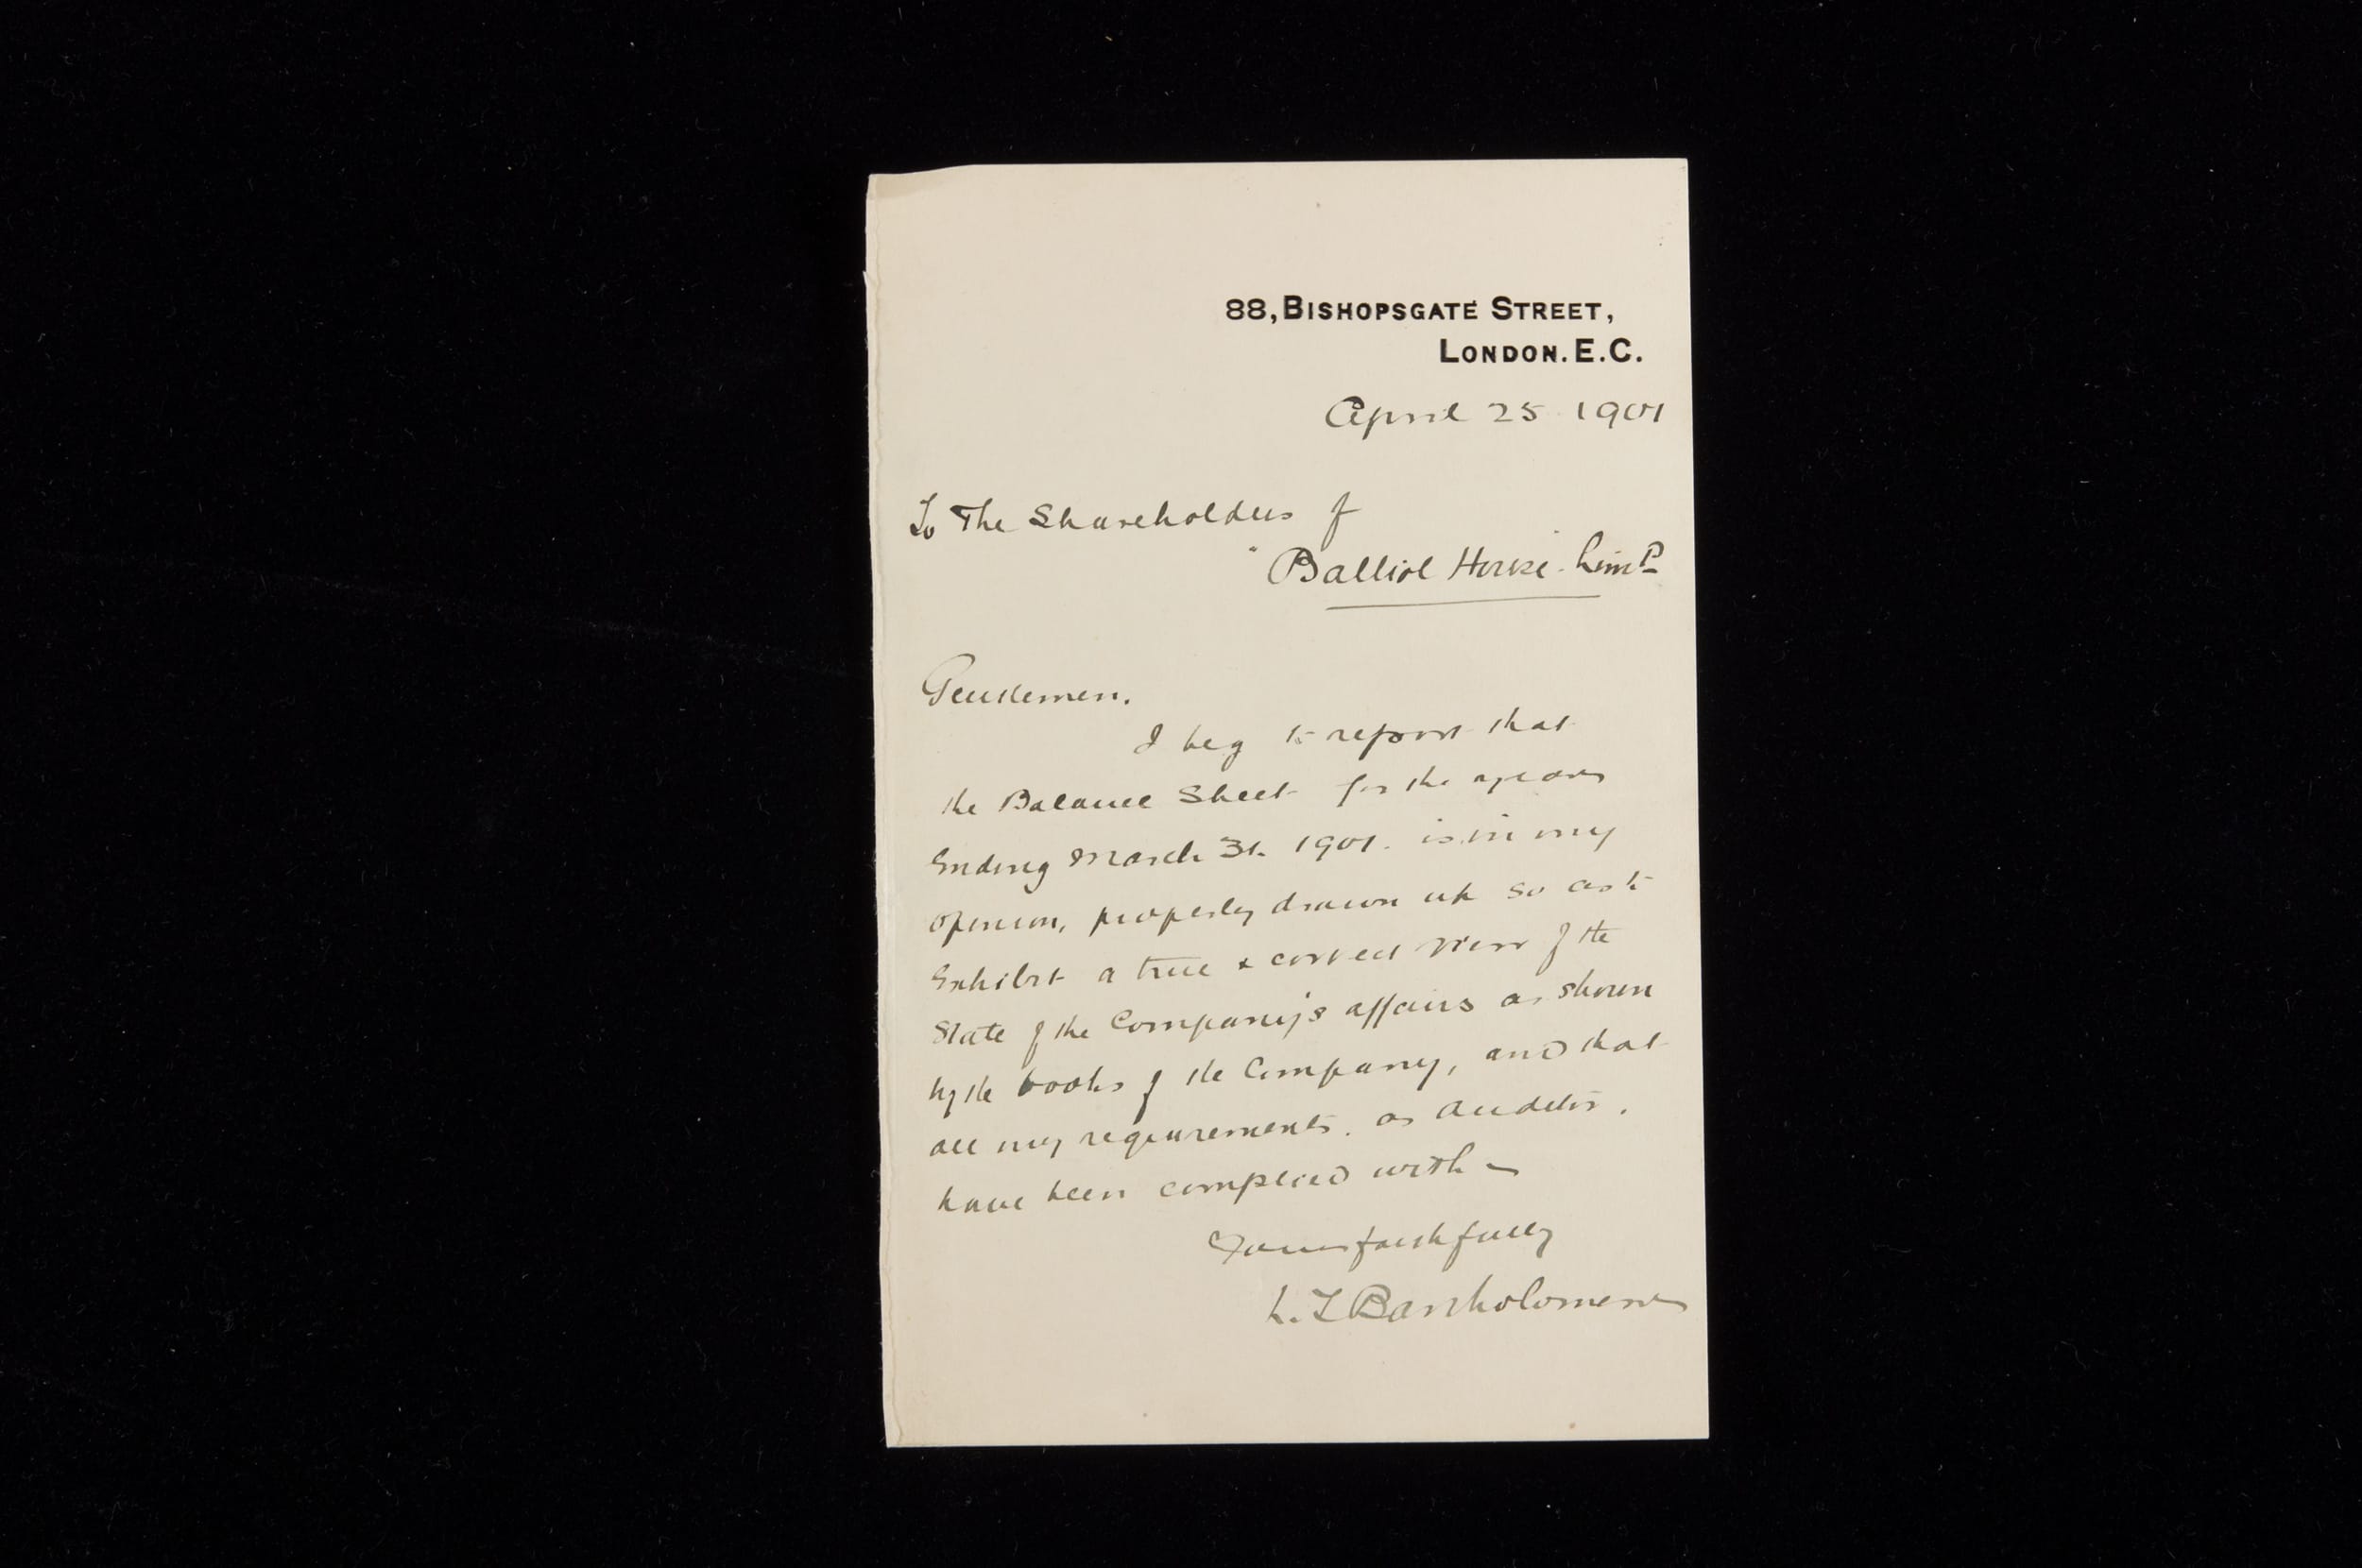 88, BISHOPSGATE STREET,
LONDON. E.C.
April 25 1901
To The Shareholders of
"Balliol House" Limd
Gentlemen.
I beg to report that
the Balance Sheet for the year
Ending March 31. 1901. is in my
opinion, properly drawn up so as to
Exhibit a true & correct view of the
State of the Company's affairs as shown
by the books of the Company, and that
all my requirements. as Auditor.
have been complied with -
Yours faithfully
L. T Bartholomew